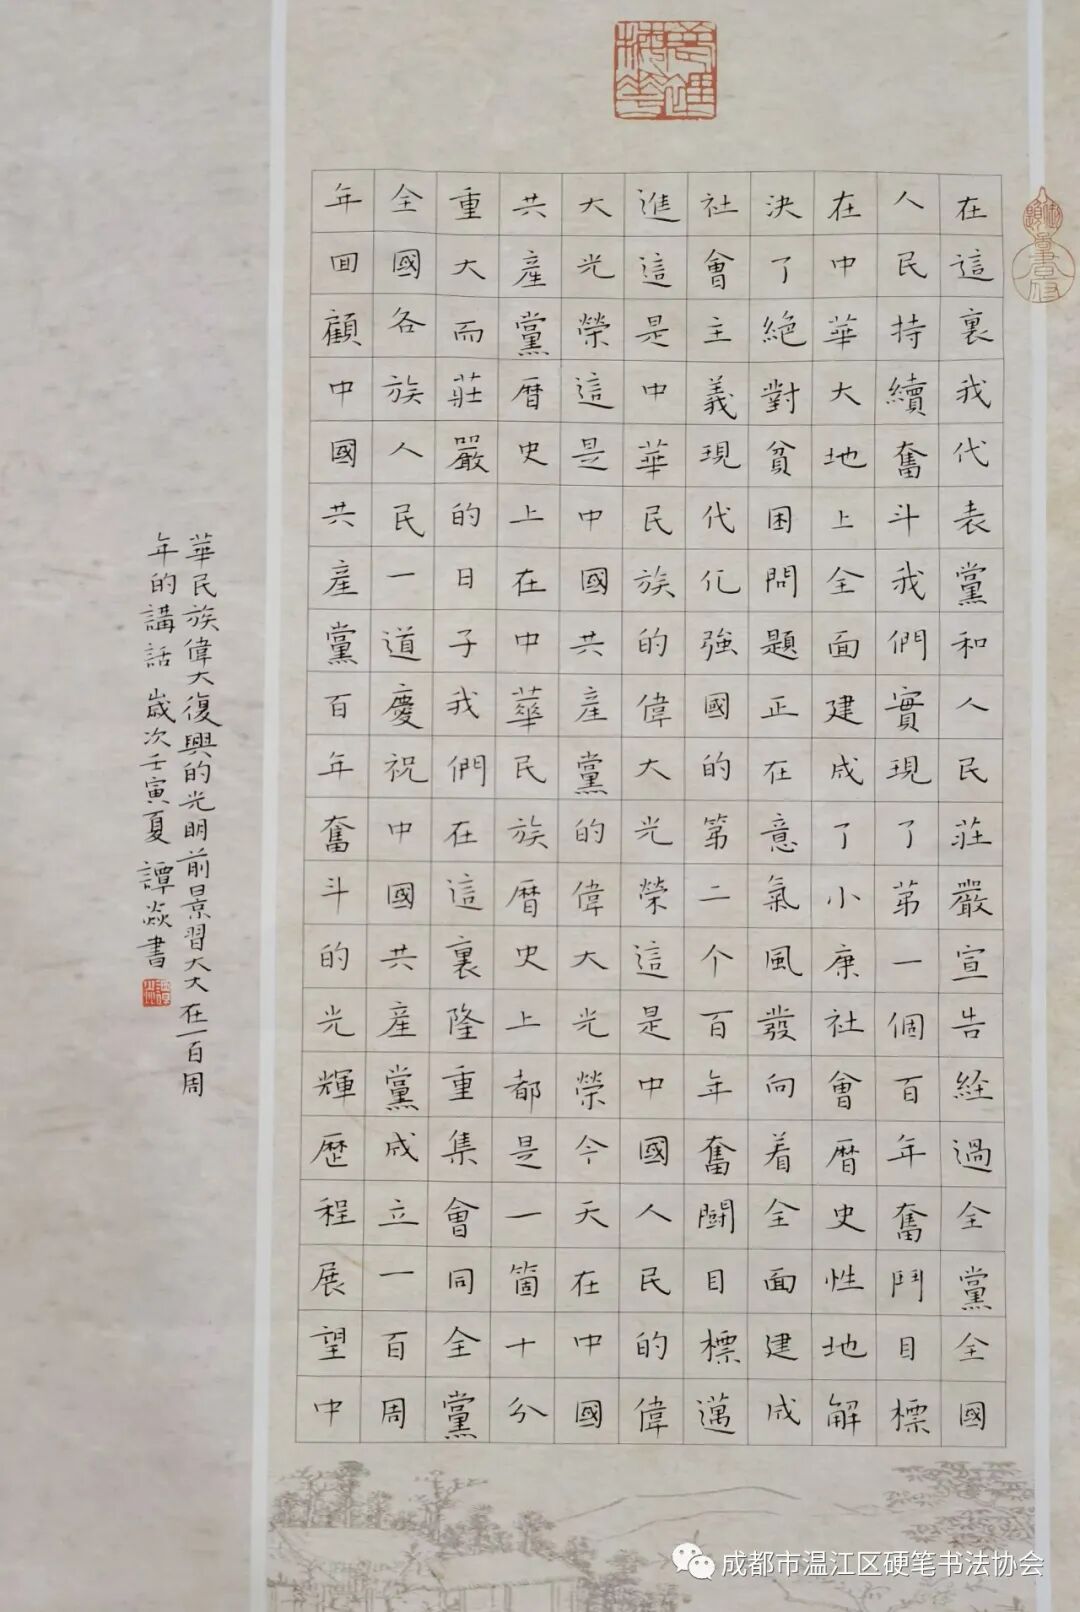 在這裏我代表黨和人民莊嚴宣告経過全黨全國
人民持續奮斗我們實現了第一個百年奮鬥目標
在中華大地上全面建成了小康社會曆史性地解
決了絶對貧困問題正在意氣風發向着全面建成
社會主義現代化強國的第二个百年奮鬭目標邁
進這是中華民族的偉大光榮這是中國人民的偉
大光榮這是中國共產黨的偉大光榮今天在中國
共產黨曆史上在中華民族曆史上都是一箇十分
重大而莊嚴的日子我們在這裏隆重集會同全黨
全國各族人民一道慶祝中國共產黨成立一百周
年回顧中國共產黨百年奮斗的光輝歷程展望中
華民族偉大復興的光明前景習大大在一百周
年的講話 歲次壬寅夏 譚焱書
成都市温江区硬笔书法协会